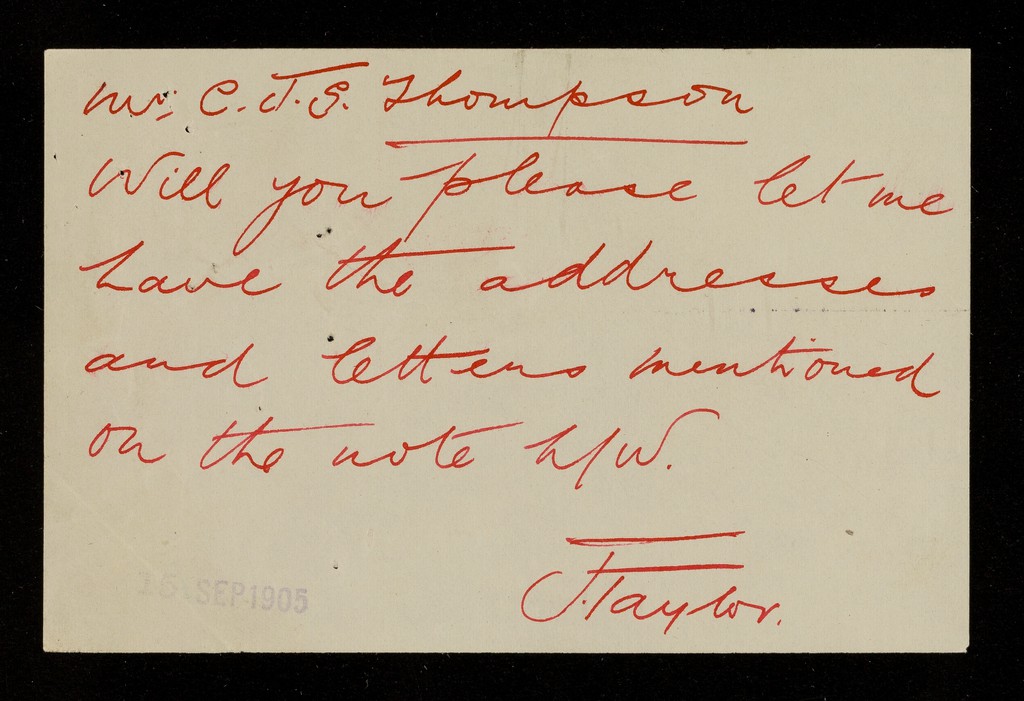 Mr. C. J. S. Thompson
Will you please let me
have the addresses
and letters mentioned
on the note h/w.
J. Taylor.
SEP 1905